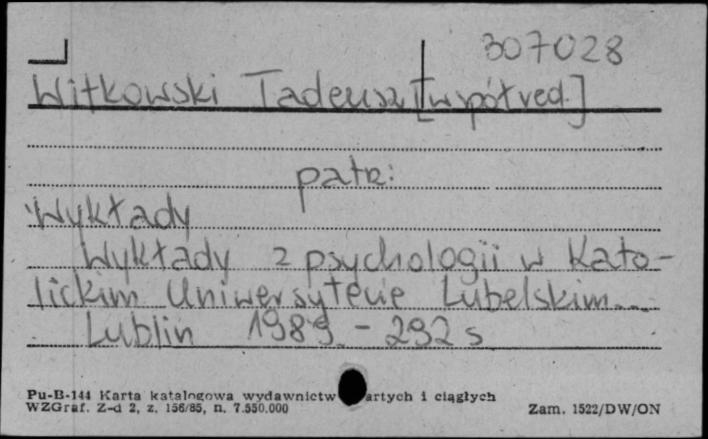 307028
Witkowski Tadeusz [współred.]
patrz:
Wykłady
Wykłady z psychologii w Kato-
lickim Uniwersytecie Lubelskim...
Lublin 1989. - 292 s
Pu-B-144 Karta katalogowa wydawnictw artych i ciągłych
WZGraf. Z-d 2, z. 156/85, n. 7.550.000
Zam. 1522/DW/ON